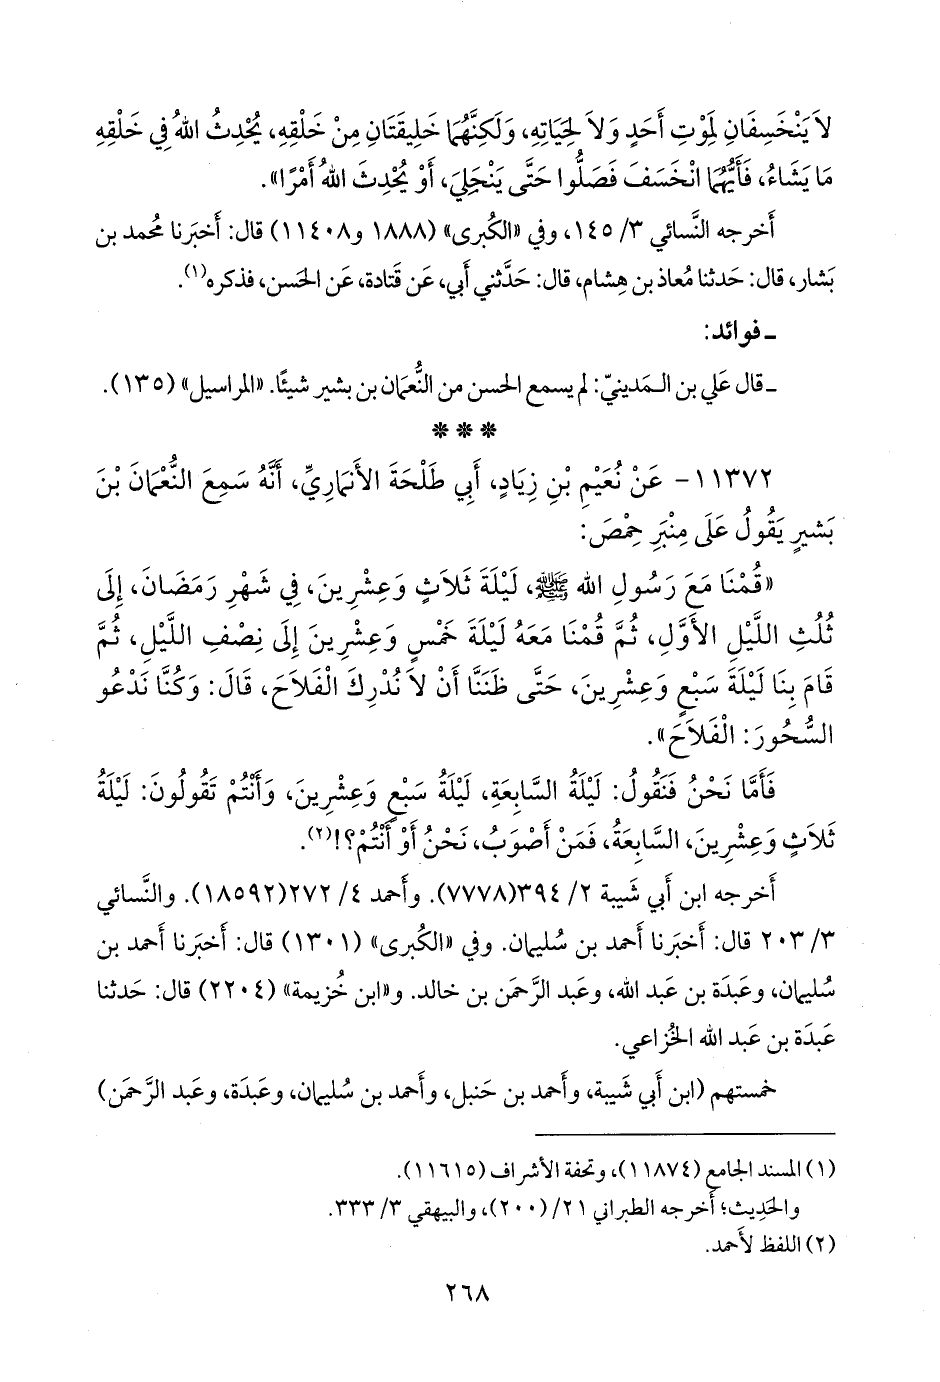 لاَ يَنْخَسِفَانِ لِمَوْتِ أَحَدٍ وَلاَ لِحَيَاتِهِ، وَلَكِنَّهُمَا خَلِيقَتَانِ مِنْ خَلْقِهِ، يُحْدِثُ اللهُ فِي خَلْقِهِ
مَا يَشَاءُ، فَأَيُّهُمَا انْخَسَفَ فَصَلُّوا حَتَّى يَنْجَلِيَ، أَوْ يُحْدِثَ اللهُ أَمْرًا».
أَخرجه النَّسائي ٣/ ١٤٥، وفي «الكُبرى» (١٨٨٨ و١١٤٠٨) قال: أَخبَرنا مُحمد بن
بَشار، قال: حَدثنا مُعاذ بن هِشام، قال: حَدَّثني أَبي، عَن قَتادة، عَن الحَسن، فذكره(١).
ـ فوائد:
ـ قال عَلي بن المَدينيّ: لم يسمع الحسن من النُّعمَان بن بشير شيئًا. «المراسيل» (١٣٥).
* * *
١١٣٧٢- عَنْ نُعَيْمِ بْنِ زِيَادٍ، أَبِي طَلْحَةَ الأَنْمَارِيِّ، أَنَّهُ سَمِعَ النُّعْمَانَ بْنَ
بَشيرٍ يَقُولُ عَلَى مِنْبَرِ حِمْصَ:
«قُمْنَا مَعَ رَسُولِ الله ﷺ، لَيْلَةَ ثَلاَثٍ وَعِشْرِينَ، فِي شَهْرِ رَمَضَانَ، إِلَى
ثُلُثِ اللَّيْلِ الأَوَّلِ، ثُمَّ قُمْنَا مَعَهُ لَيْلَةَ خَمْسٍ وَعِشْرِينَ إِلَى نِصْفِ اللَّيْلِ، ثُمَّ
قَامَ بِنَا لَيْلَةَ سَبْعٍ وَعِشْرِينَ، حَتَّى ظَنَنَّا أَنْ لاَ نُدْرِكَ الْفَلاَحَ، قَالَ: وَكُنَّا نَدْعُو
السُّحُورَ: الْفَلاَحَ».
فَأَمَّا نَحْنُ فَنَقُولُ: لَيْلَةُ السَّابِعَةِ، لَيْلَةُ سَبْعٍ وَعِشْرِينَ، وَأَنْتُمْ تَقُولُونَ: لَيْلَةُ
ثَلاَثٍ وَعِشْرِينَ، السَّابِعَةُ، فَمَنْ أَصْوَبُ، نَحْنُ أَوْ أَنْتُمْ؟!(٢).
أَخرجه ابن أَبي شَيبة ٢/ ٣٩٤(٧٧٧٨). وأَحمد ٤/ ٢٧٢(١٨٥٩٢). والنَّسائي
٣/ ٢٠٣ قال: أَخبَرنا أَحمد بن سُليمان. وفي «الكُبرى» (١٣٠١) قال: أَخبَرنا أَحمد بن
سُليمان، وعَبدَة بن عَبد الله، وعَبد الرَّحمَن بن خالد. و«ابن خُزيمة» (٢٢٠٤) قال: حَدثنا
عَبدَة بن عَبد الله الخُزاعي.
خمستهم (ابن أَبي شَيبة، وأَحمد بن حَنبل، وأَحمد بن سُليمان، وعَبدَة، وعَبد الرَّحمَن)
(١) المسند الجامع (١١٨٧٤)، وتحفة الأشراف (١١٦١٥).
والحَدِيث؛ أَخرجه الطبراني ٢١/ (٢٠٠)، والبيهقي ٣/ ٣٣٣.
(٢) اللفظ لأَحمد.
٢٦٨